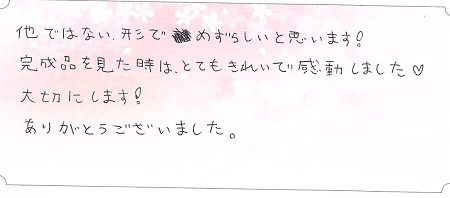 他ではない、形でめずらしいと思います！
完成品を見た時は、とてもきれいで感動しました♡
大切にします！
ありがとうございました。